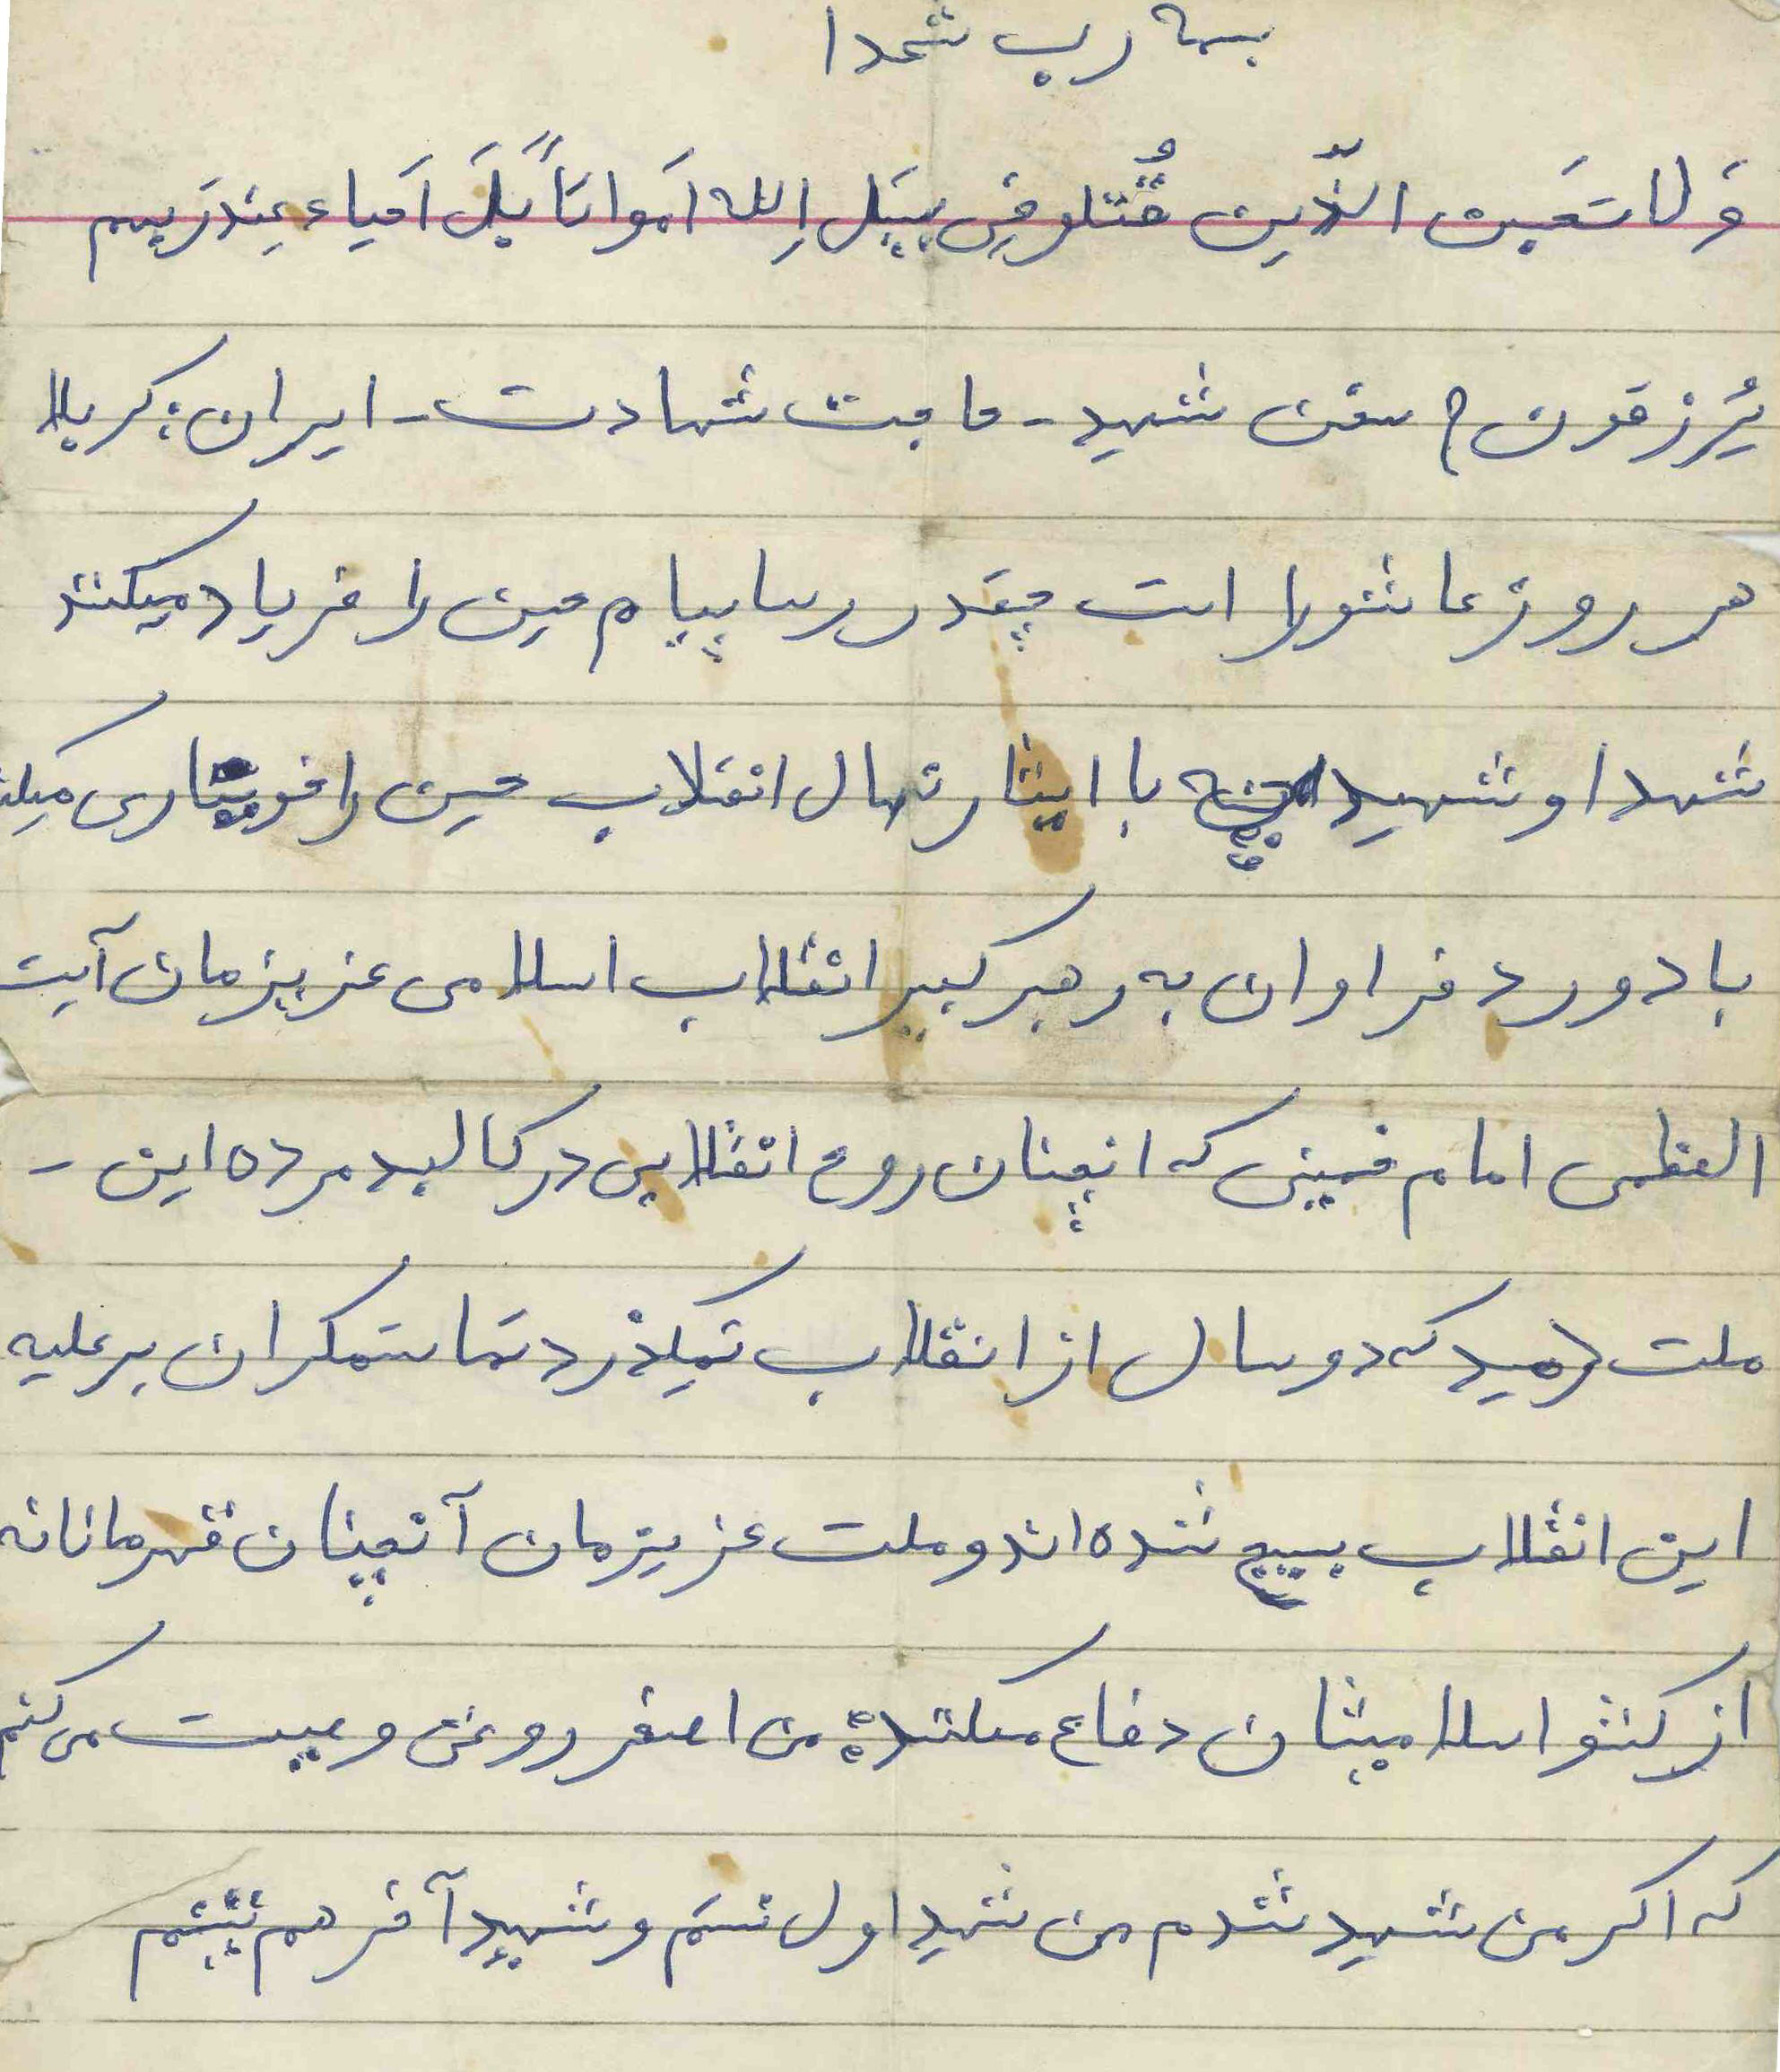 بسمه رب شهدا
وَلا تَحسبن الذّین قُتلو فِی سَبیل اِلله اَمواتاً بَل اَحیاء عِندَ رَبهم
یُرزقون، سخن شهید - ما جت شهادت - ایران: کربلا
هر روز عاشورا است چقدر رسا پیام حسین را فریاد میکنند
شهدا و شهید با ایثار نهال انقلاب حسین را میکنند
با دورد فراوان به رهبر کبیر انقلاب اسلامی عزیزمان آیت
العظمی امام خمینی که انچنان روح انقلابی در کالبد مرده این -
ملت دمید که دو سال از انقلاب نمیگذرد تما ستمکران بر علیه
این انقلاب بسیج شده اند و ملت عزیزمان آنچنان قهرمانانه
از کشو اسلامیشان دفاع میکنند من اصغر روغنی وصیت می کنم
که اکر من شهید شدم من شهید اول نیستم و شهید آخر هم نیستم